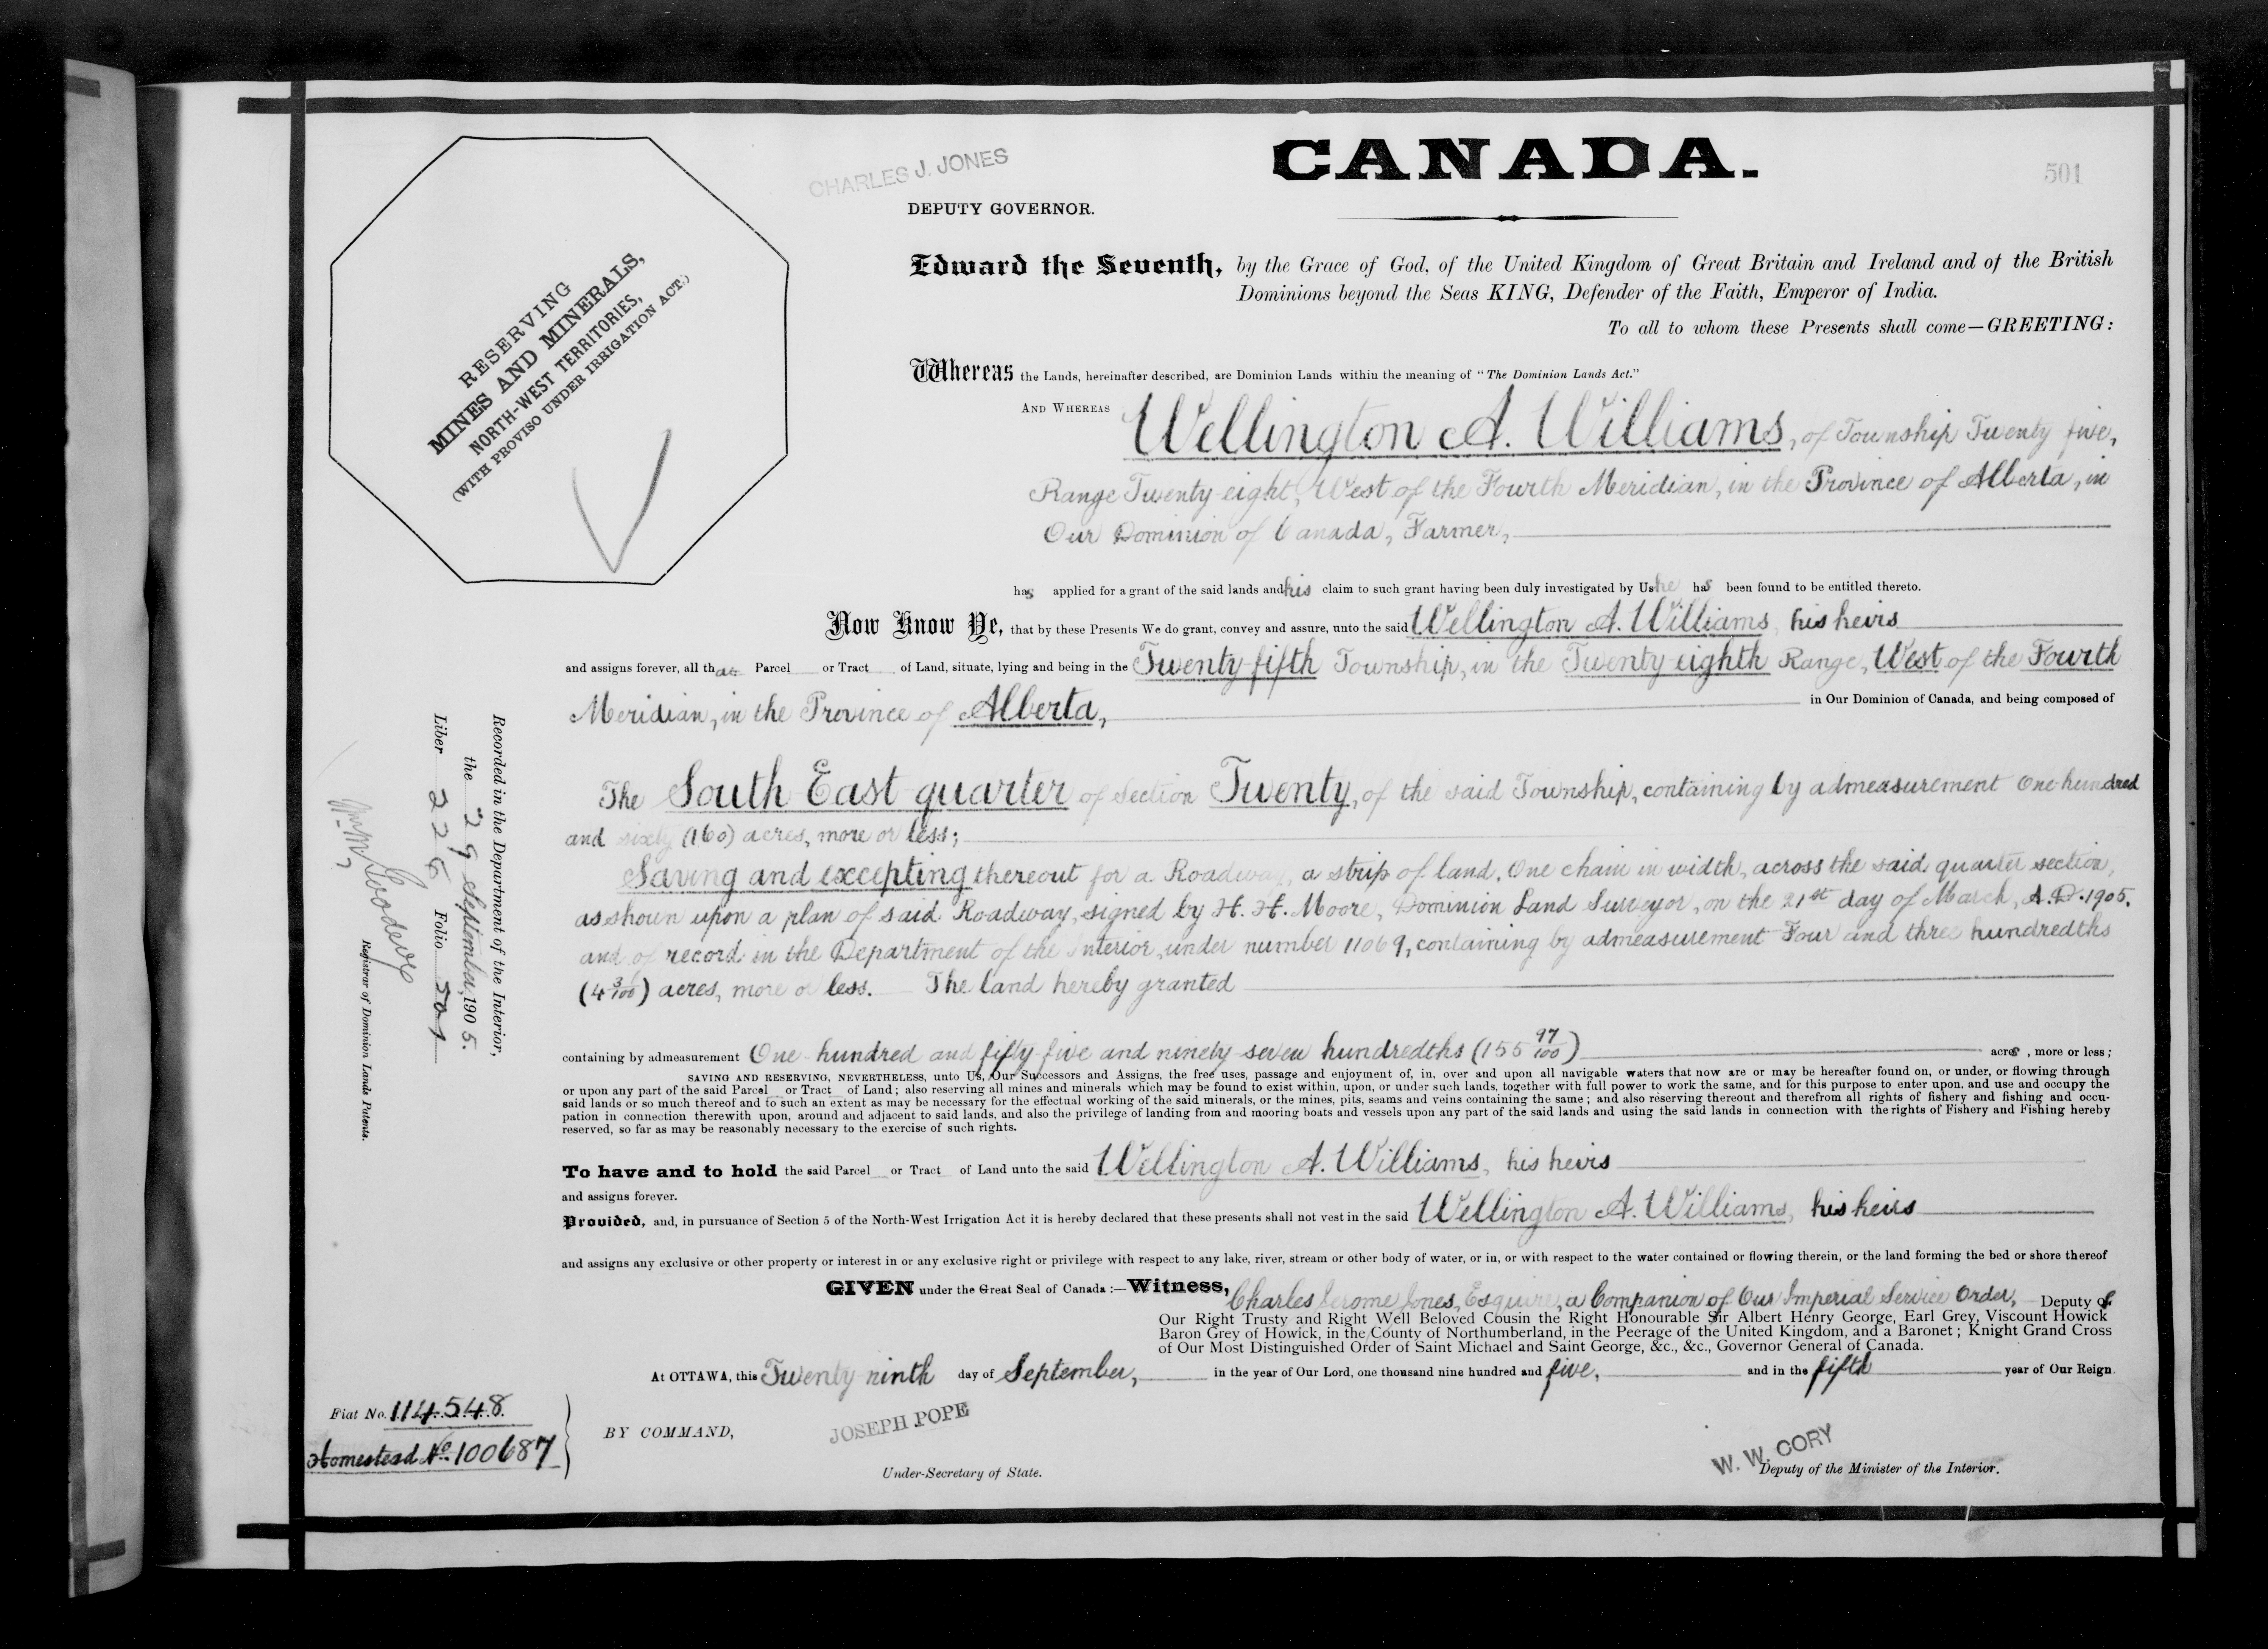 CHARLES J. JONES
CANADA.
501
DEPUTY GOVERNOR.
RESERVING
MINES AND MINERALS,
NORTH-WEST TERRITORIES,
(WITH PROVISO UNDER IRRIGATION ACT.)
Edward the Seventh, by the Grace of God, of the United Kingdom of Great Britain and Ireland and of the British
Dominions beyond the Seas KING, Defender of the Faith, Emperor of India.
To all to whom these Presents shall come—GREETING:
Whereas the Lands, hereinafter described, are Dominion Lands within the meaning of "The Dominion Lands Act."
AND WHEREAS Wellington A. Williams, of Township Twenty five,
Range Twenty-eight, West of the Fourth Meridian, in the Province of Alberta, in
Our Dominion of Canada, Farmer,
has applied for a grant of the said lands and his claim to such grant having been duly investigated by Us he has been found to be entitled thereto.
Now Know Ye, that by these Presents We do grant, convey and assure, unto the said Wellington A. Williams, his heirs
and assigns forever, all that Parcel or Tract of Land, situate, lying and being in the Twenty-fifth Township, in the Twenty-eighth Range, West of the Fourth
Meridian, in the Province of Alberta, in Our Dominion of Canada, and being composed of
The South East quarter of Section Twenty, of the said Township, containing by admeasurement One hundred
and sixty (160) acres, more or less;
Saving and excepting thereout for a Roadway, a strip of land, One chain in width, across the said quarter section,
as shown upon a plan of said Roadway, signed by H. H. Moore, Dominion Land Surveyor, on the 21st day of March, A.D. 1905,
and of record in the Department of the Interior, under number 11069, containing by admeasurement Four and three hundredths
(4 3/100) acres, more or less. The land hereby granted
containing by admeasurement One hundred and fifty five and ninety seven hundredths (155 97/100) acres, more or less;
SAVING AND RESERVING, NEVERTHELESS, unto Us, Our Successors and Assigns, the free uses, passage and enjoyment of, in, over and upon all navigable waters that now are or may be hereafter found on, or under, or flowing through
or upon any part of the said Parcel or Tract of Land; also reserving all mines and minerals which may be found to exist within, upon, or under such lands, together with full power to work the same, and for this purpose to enter upon, and use and occupy the
said lands or so much thereof and to such an extent as may be necessary for the effectual working of the said minerals, or the mines, pits, seams and veins containing the same; and also reserving thereout and therefrom all rights of fishery and fishing and occu-
pation in connection therewith upon, around and adjacent to said lands, and also the privilege of landing from and mooring boats and vessels upon any part of the said lands and using the said lands in connection with the rights of Fishery and Fishing hereby
reserved, so far as may be reasonably necessary to the exercise of such rights.
To have and to hold the said Parcel or Tract of Land unto the said Wellington A. Williams, his heirs
and assigns forever.
Provided, and, in pursuance of Section 5 of the North-West Irrigation Act it is hereby declared that these presents shall not vest in the said Wellington A. Williams, his heirs
and assigns any exclusive or other property or interest in or any exclusive right or privilege with respect to any lake, river, stream or other body of water, or in, or with respect to the water contained or flowing therein, or the land forming the bed or shore thereof
GIVEN under the Great Seal of Canada:—Witness, Charles Jerome Jones, Esquire, a Companion of Our Imperial Service Order, Deputy of
Our Right Trusty and Right Well Beloved Cousin the Right Honourable Sir Albert Henry George, Earl Grey, Viscount Howick
Baron Grey of Howick, in the County of Northumberland, in the Peerage of the United Kingdom, and a Baronet; Knight Grand Cross
of Our Most Distinguished Order of Saint Michael and Saint George, &c., &c., Governor General of Canada.
At OTTAWA, this Twenty ninth day of September, in the year of Our Lord, one thousand nine hundred and five, and in the fifth year of Our Reign.
BY COMMAND,
JOSEPH POPE
Under-Secretary of State.
W. W. CORY
Deputy of the Minister of the Interior.
Fiat No. 114548
Homestead No. 100687
Recorded in the Department of the Interior,
the 29 September, 1905.
Liber 226 Folio 501
Registrar of Dominion Lands Patents.